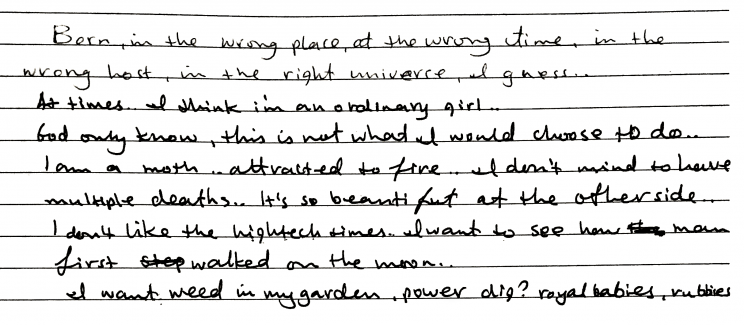 Born, in the wrong place, at the wrong time, in the
wrong host, in the right universe, I guess...
At times.. I think i'm an ordinary girl..
God only know, this is not what I would choose to do..
I am a moth.. attracted to fire.. I don't mind to have
multiple deaths.. It's so beautiful at the other side..
I don't like the hightech times.. I want to see how man
first walked on the moon..
I want weed in my garden, power dig? royal babies, rubbies